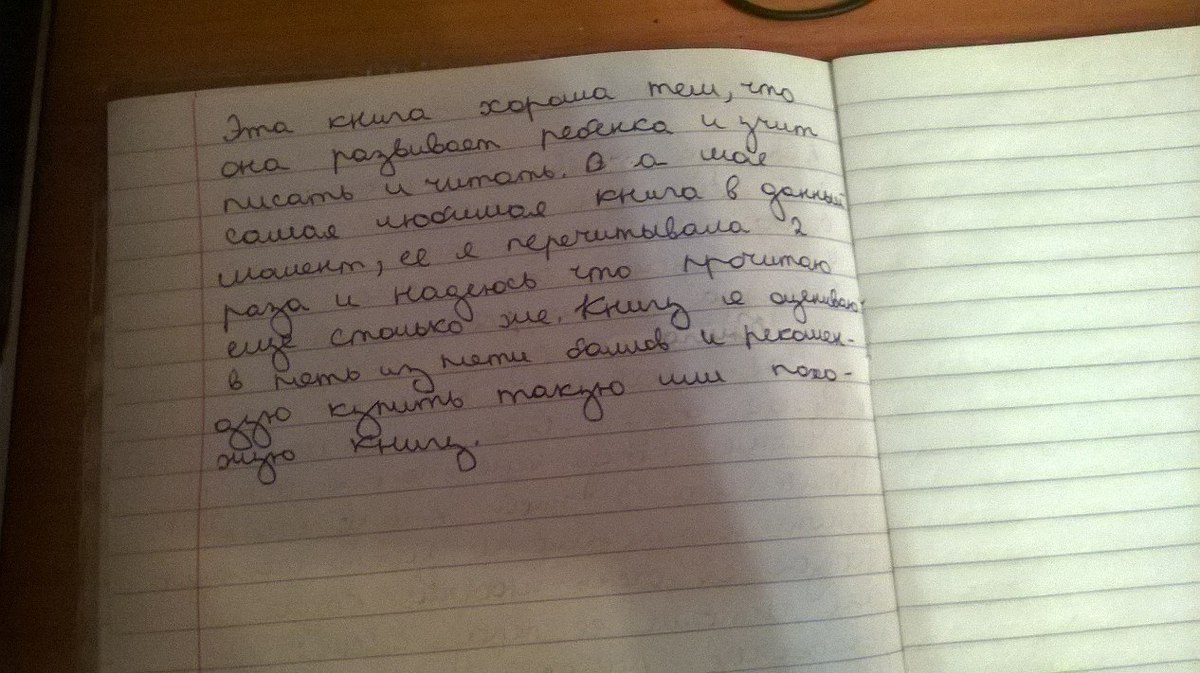 Эта книга хороша тем, что
она развивает ребенка и учит
писать и читать. В а мае
самая любимая книга в данный
момент, ее я перечитывала 2
раза и надеюсь что прочитаю
еще столько же. Книгу я оцениваю
в пять из пяти баллов и рекомен-
дую купить такую или похо-
жую книгу.